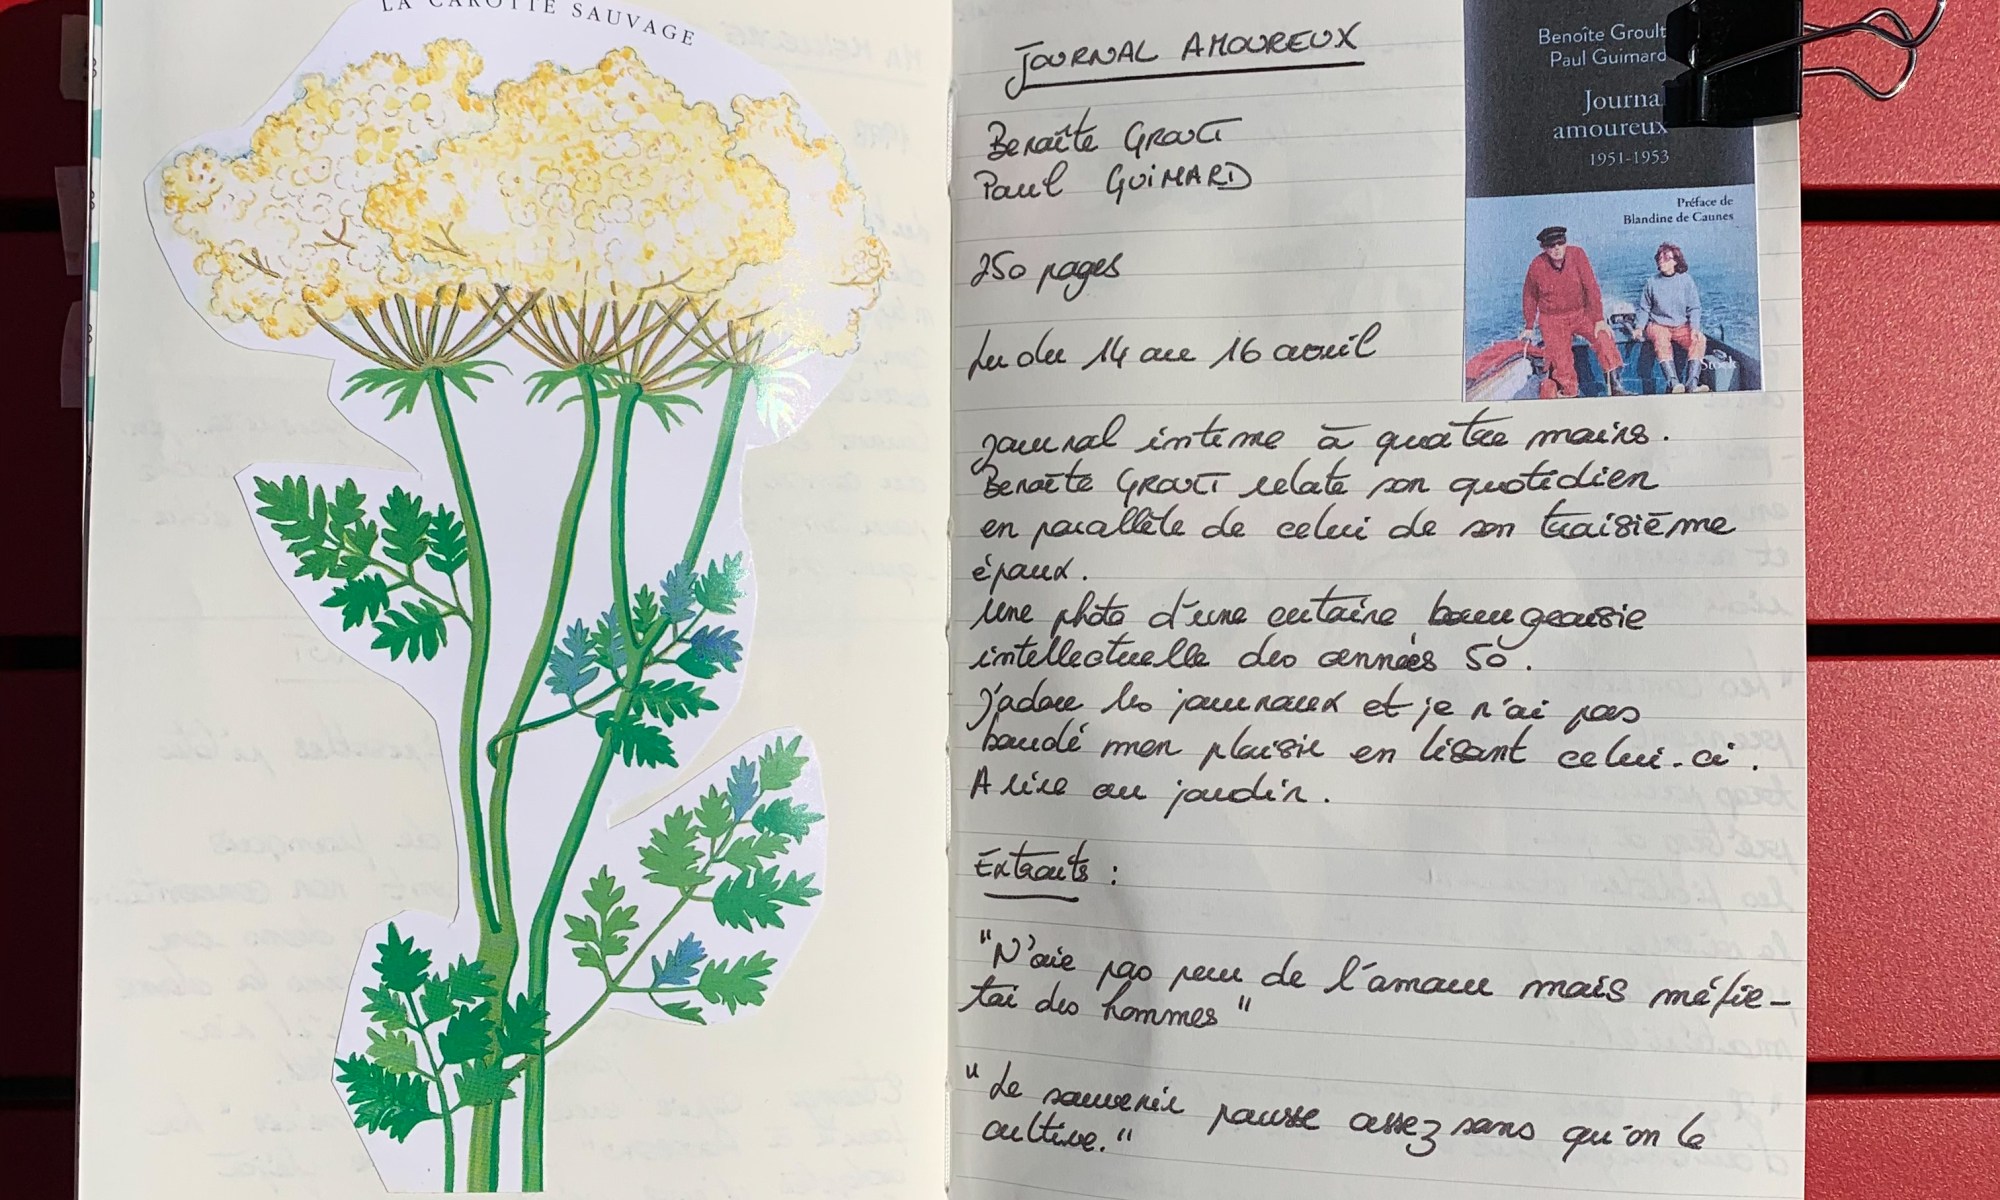 LA CAROTTE SAUVAGE
JOURNAL AMOUREUX
Benoîte GROULT
Paul GUIMARD
250 pages
Lu du 14 au 16 avril
Benoîte Groult
Paul Guimard
Journal
amoureux
1951-1953
Préface de
Blandine de Caunes
Stock
Journal intime à quatre mains.
Benoîte GROULT relate son quotidien
en parallèle de celui de son troisième
époux.
Une photo d'une certaine bourgeoisie
intellectuelle des années 50.
J'adore les journaux et je n'ai pas
boudé mon plaisir en lisant celui-ci.
A lire au jardin.
Extraits :
"N'aie pas peur de l'amour mais méfie-
toi des hommes"
"Le souvenir pousse assez sans qu'on le
cultive."